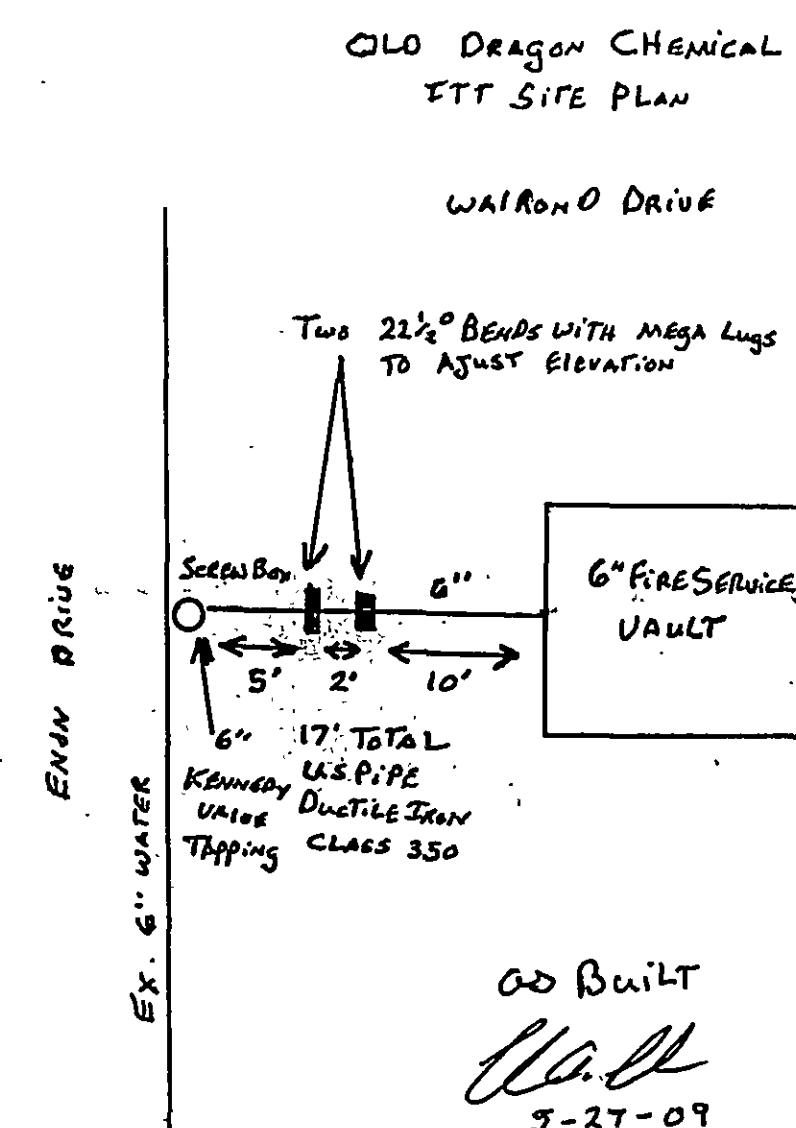 OLD DRAGON CHEMICAL
ITT SITE PLAN
WALROND DRIVE
TWO 22½° BENDS WITH MEGA LUGS
TO AJUST ELEVATION
SCREW BOX
6"
6" FIRE SERVICE
VAULT
5' 2' 10'
6"
KENNEDY
VALVE
TAPPING
17' TOTAL
U.S. PIPE
DUCTILE IRON
CLASS 350
ENON DRIVE
EX. 6" WATER
AS BUILT
9-27-09